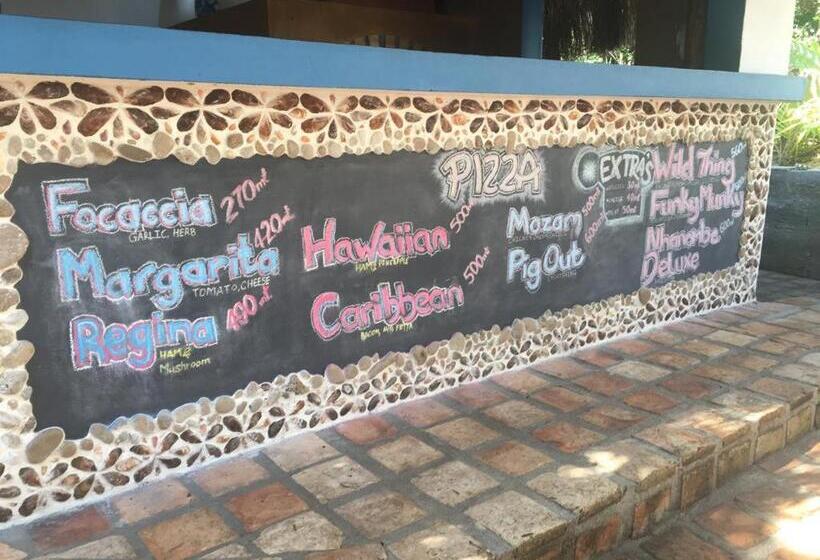 PIZZA
Focaccia 270mt
GARLIC, HERB
Margarita 420mt
TOMATO, CHEESE
Regina 490mt
HAM &
Mushroom
Hawaiian 500mt
HAM & PINEAPPLE
Caribbean 500mt
BACON, AVO FETTA
Mozam 500mt
Pig Out 600mt
EXTRA'S
Wild Thing
Funky Munky
Nhanombe
Deluxe